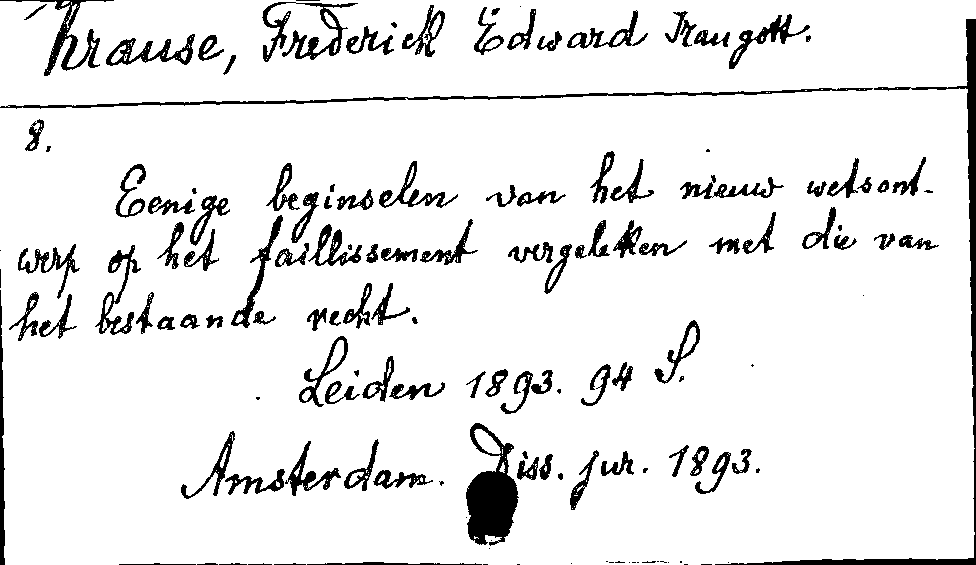 Krause, Frederick Edward Traugott.
8.
Eenige beginselen van het nieuw wetsont-
werp op het faillissement vergeleken met die van
het bestaande recht.
Leiden 1893. 94 S.
Amsterdam. Diss. jur. 1893.